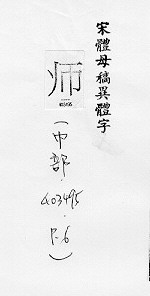 宋體母稿異體字
师
(巾部.
403495.
P.6)